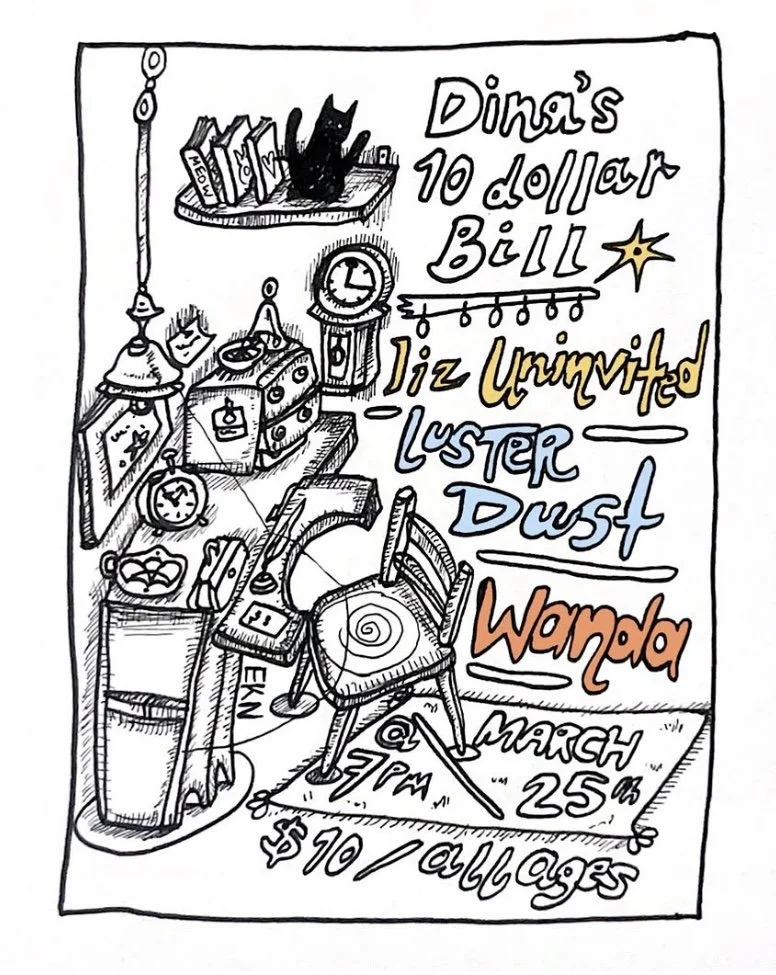 Dina's
10 dollar
Bill
liz Uninvited
LUSTER
Dust
Wanda
@
7PM
MARCH
25th
$10/all ages
MEOW
EKN